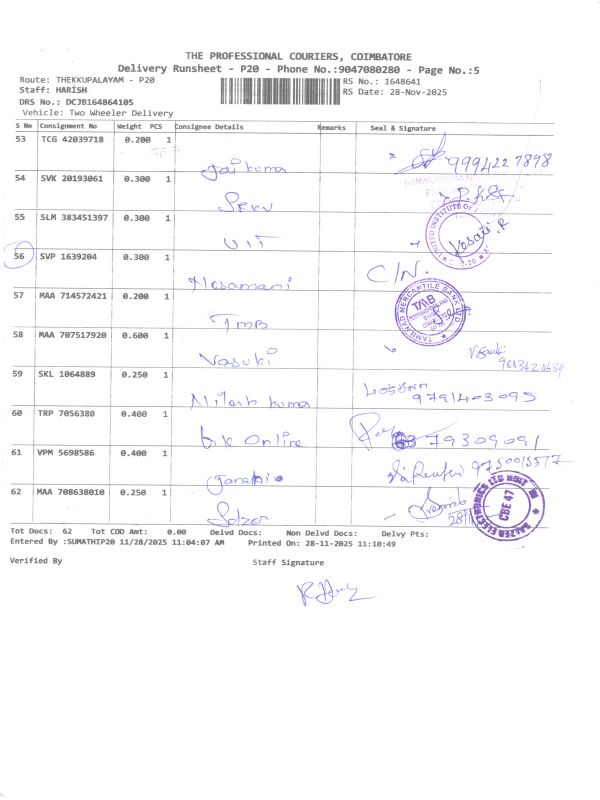 THE PROFESSIONAL COURIERS, COIMBATORE
Delivery Runsheet - P20 - Phone No.:9047080280 - Page No.:5
Route: THEKKUPALAYAM - P20
RS No.: 1648641
Staff: HARISH
RS Date: 28-Nov-2025
DRS No.: DCJB164864105
Vehicle: Two Wheeler Delivery
S No Consignment No Weight PCS Consignee Details Remarks Seal & Signature
53 TCG 42039718 0.200 1
Jai kumar 9994227898
54 SVK 20193061 0.300 1
SRKV
55 SLM 383451397 0.300 1
UIT
UNITED INSTITUTE OF
56 SVP 1639204 0.300 1
Nesamani C/N.
57 MAA 714572421 0.200 1
TMB
TAMILNAD MERCANTILE BANK LTD
TMB
58 MAA 707517920 0.600 1
Vasuki Vasuki
59 SKL 1064889 0.250 1
Nilash kumar 9791403095
60 TRP 7056380 0.400 1
Online 79309091
61 VPM 5698586 0.400 1
Janaki
62 MAA 708638010 0.250 1
Salzer
SALZER ELECTRONICS LTD
CBE 47
Tot Docs: 62 Tot COD Amt: 0.00 Delvd Docs: Non Delvd Docs: Delvy Pts:
Entered By :SUMATHIP20 11/28/2025 11:04:07 AM Printed On: 28-11-2025 11:10:49
Verified By Staff Signature